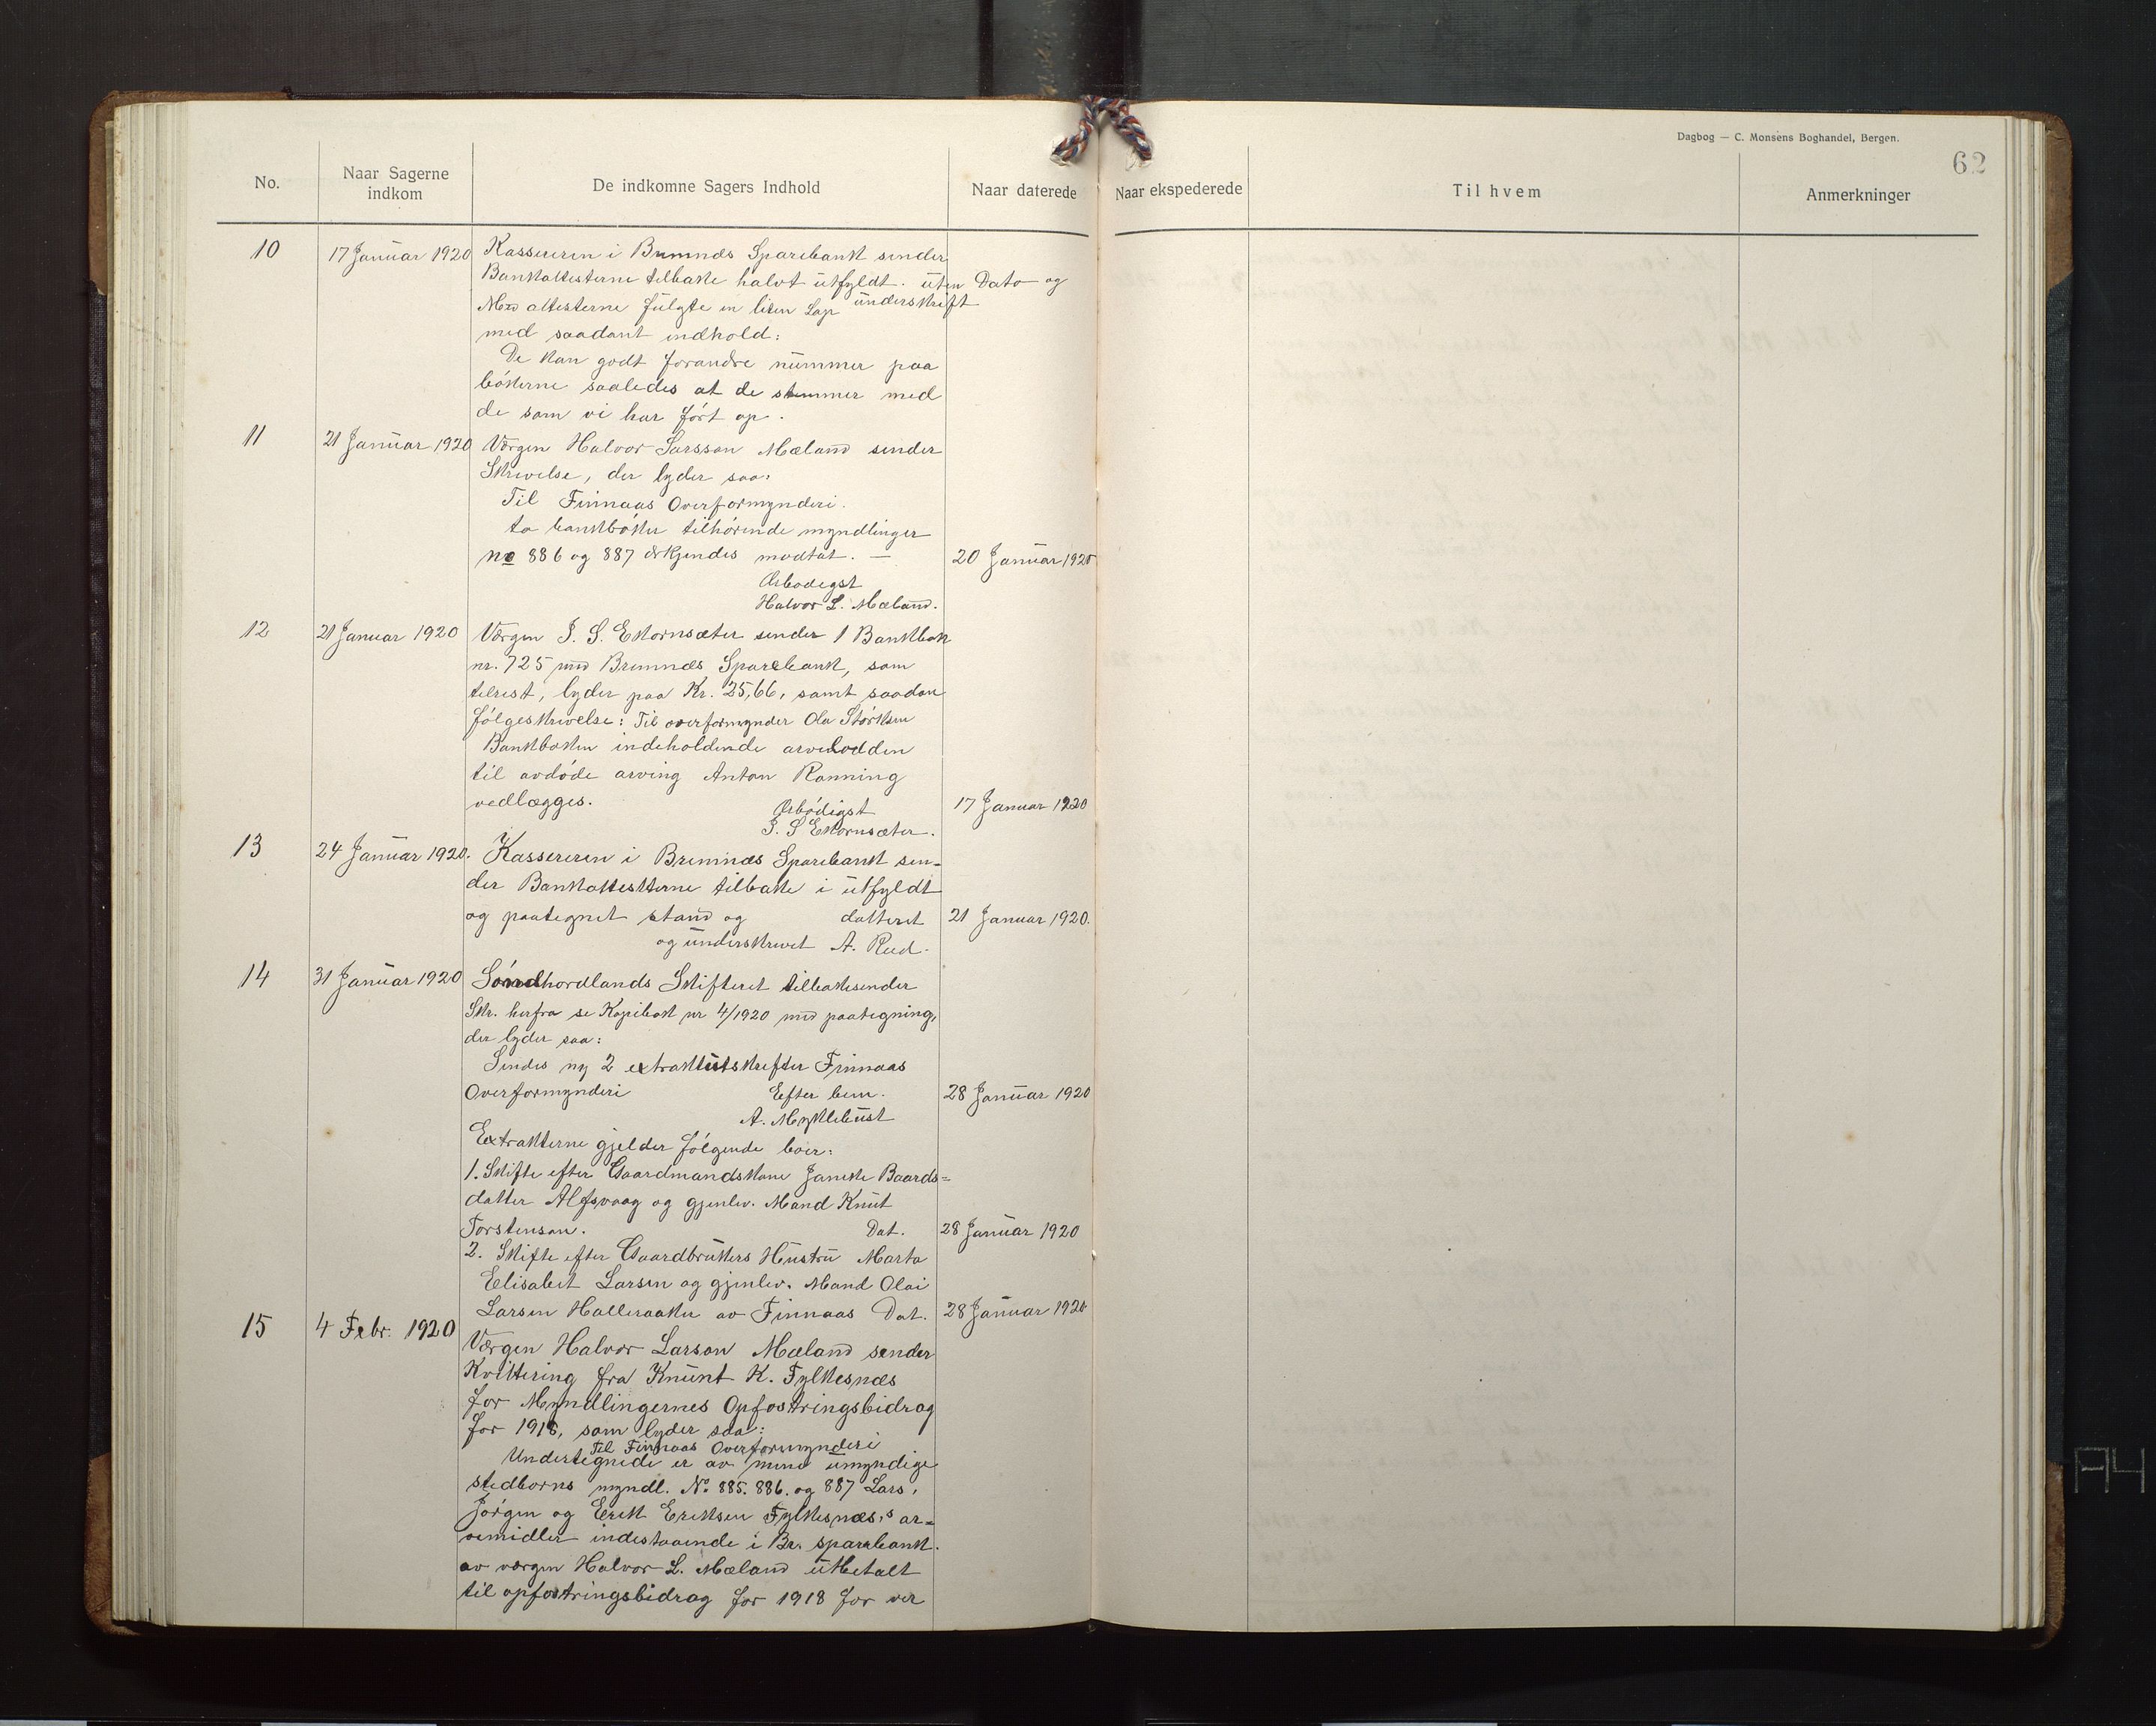 Dagbog — C. Monsens Boghandel, Bergen.
62
No.
Naar Sagerne indkom
De indkomne Sagers Indhold
Naar daterede
Naar ekspederede
Til hvem
Anmerkninger
10
17 Januar 1920
Kassereren i Bremnæs Sparebank sender
Bankattesterne tilbake halvt utfyldt. uten Dato og
underskrift
Med attesterne fulgte en liten Lap
med saadant indhold:
De kan godt forandre nummer paa
bókerne saaledes at de stemmer med
de som vi har fórt op.
11
21 Januar 1920
Værgen Halvor Larsson Mæland sender
Skrivelse, der lyder saa:
Til Finnaas Overformynderi.
to bankbóker tilhórende myndlinger
no 886 og 887 erkjendes modtat. —
20 Januar 1920
Ærbodigst
Halvor L. Mæland.
12
21 Januar 1920
Værgen J. S. Ekornsæter sender 1 Bankbok
nr. 725 med Bremnæs Sparebank, som
tilrest, lyder paa Kr. 25,66, samt saadan
fólgeskrivelse: Til overformynder Ola Stórksen
Bankboken indeholdende arvelodden
til avdóde arving Anton Rønning
vedlægges.
17 Januar 1920
Ærbódigst
J. S Ekornsæter.
13
24 Januar 1920.
Kassereren i Bremnæs Sparebank sen-
der Bankattesterne tilbake i utfyldt
og paategnet stand og datteret
21 Januar 1920.
og underskrevet A. Rud.
14
31 Januar 1920
Sóndhordlands Skifteret tilbakesender
Skr. herfra se Kopibok nr 4/1920 med paategning,
der lyder saa:
Sendes ny 2 extraktutskrefter Finnaas
Overformynderi Efter bem.
28 Januar 1920
A. Myklebust
Extrakterne gjelder fólgende boer:
1. Skifte efter Gaardmandskone Janeke Baards-
datter Alfsvaag og gjenlev. Mand Knut
Torstenson. Dat.
28 Januar 1920
2. Skifte efter Gaardbrukers Hustru Marta
Elisabet Larsen og gjenlev. Mand Olai
Larsen Halleraaker av Finnaas Dat.
28 Januar 1920
15
4 Febr. 1920
Værgen Halvor Larson Mæland sender
Kvittering fra Knunt K. Fylkesnæs
for Myndlingernes Opfostringsbidrag
for 1918, som lyder saa:
Til Finnaas Overformynderi
Undertegnede er av mine umyndige
stedborns myndl. No 885. 886. og 887 Lars,
Jórgen og Erik Eriksen Fylkesnæs,s ar-
vemidler indestaaende i Br. sparebank.
av værgen Halvor L. Mæland utbetalt
til opfostringsbidrag for 1918 for ver